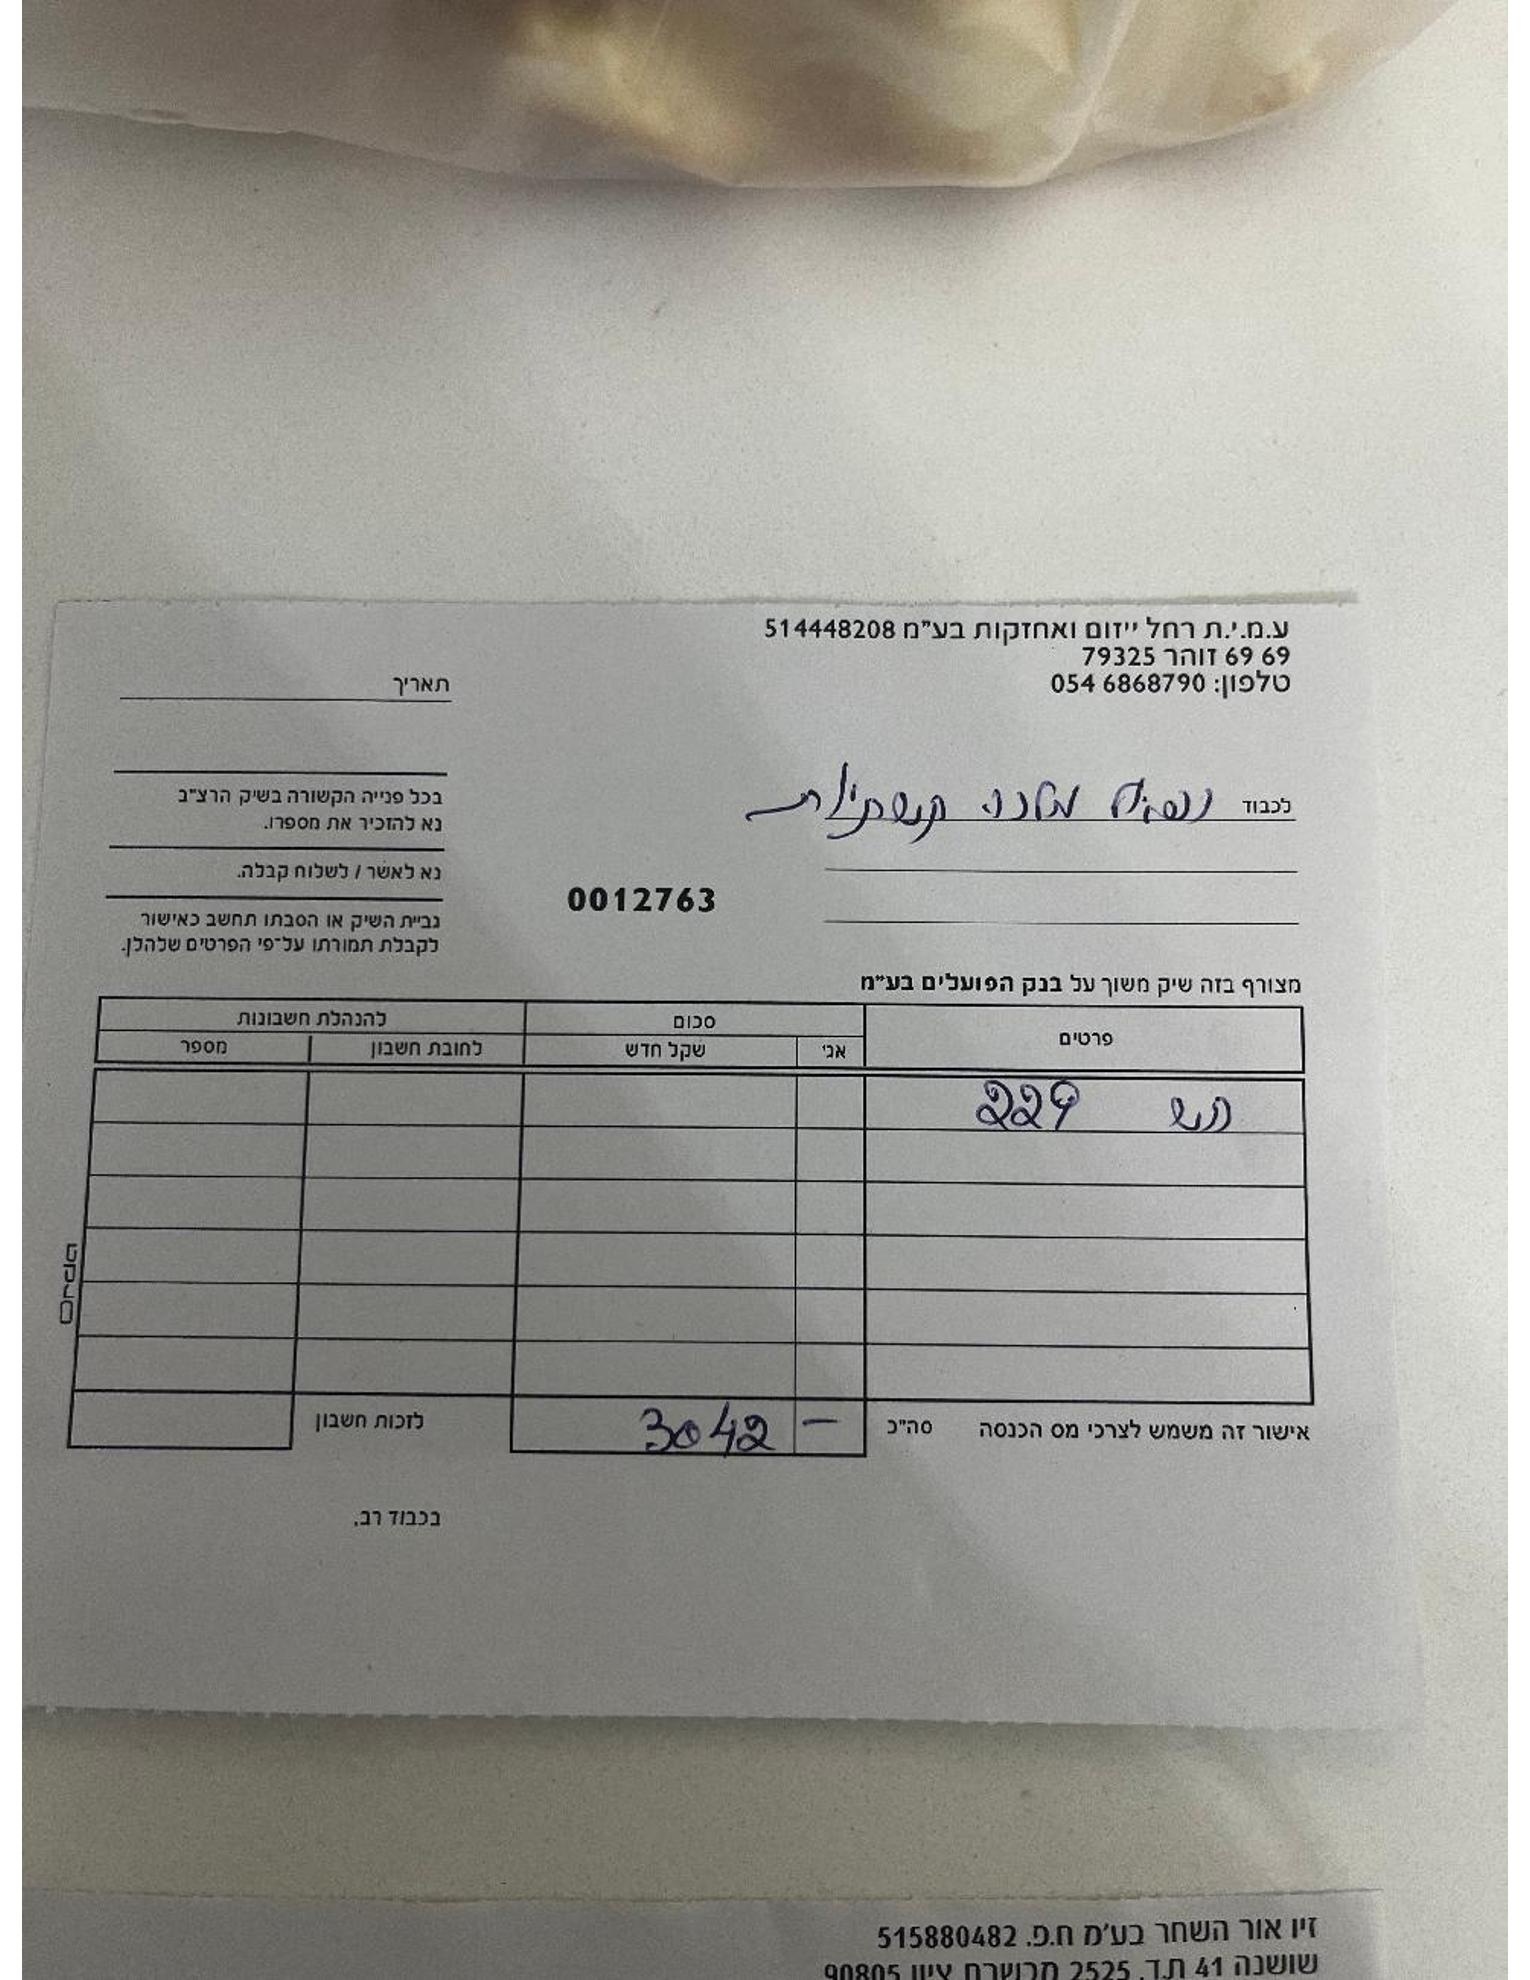 ע.מ.י.ת רחל ייזום ואחזקות בע"מ 514448208
69 69 זוהר 79325
טלפון: 054 6868790
תאריך
לכבוד מלכה
בכל פנייה הקשורה בשיק הרצ"ב
נא להזכיר את מספרו.
נא לאשר / לשלוח קבלה.
0012763
גביית השיק או הסבתו תחשב כאישור
לקבלת תמורתו על-פי הפרטים שלהלן.
מצורף בזה שיק משוך על בנק הפועלים בע"מ
פרטים סכום להנהלת חשבונות
אג' שקל חדש לחובת חשבון מספר
חש 229
אישור זה משמש לצרכי מס הכנסה סה"כ — 3042 לזכות חשבון
בכבוד רב,
Orda
זיו אור השחר בע'מ ח.פ. 515880482
שושנה 41 ת.ד. 2525 מבשרת ציון 90805